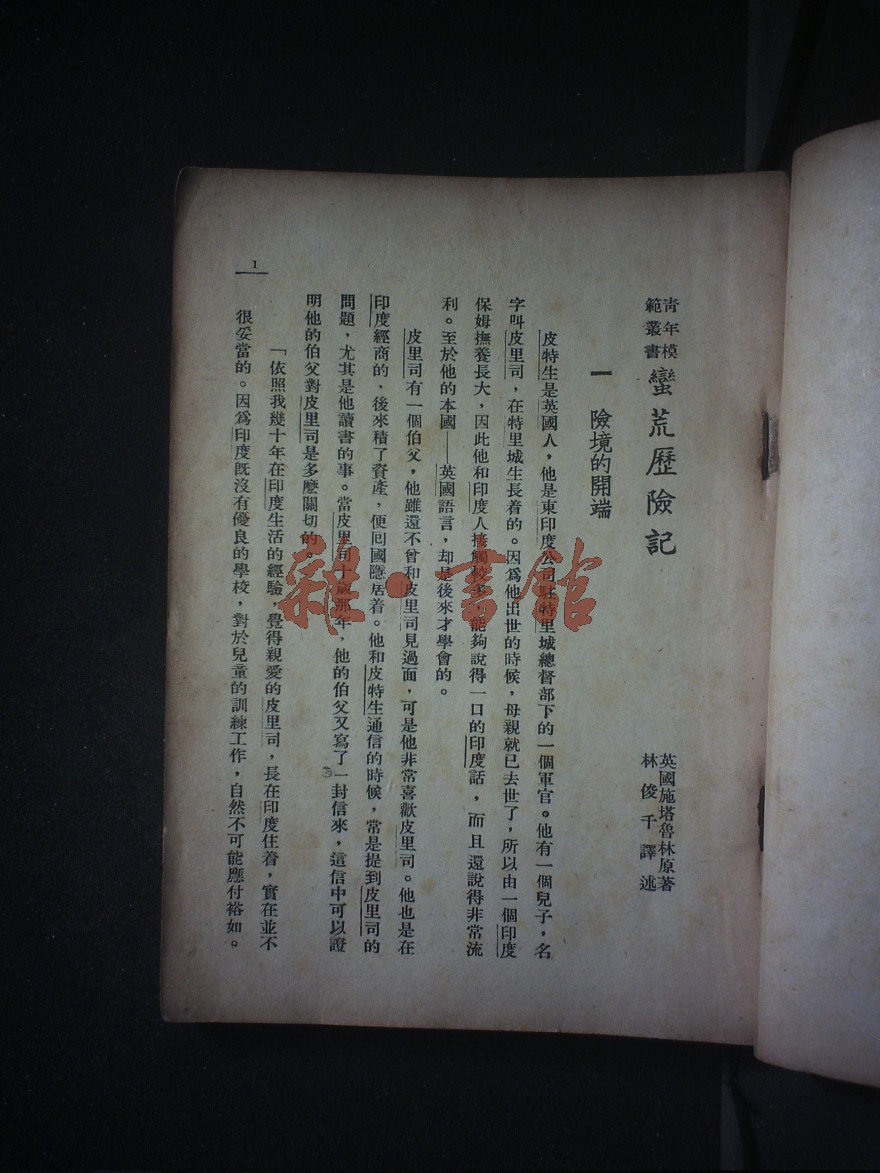 青年模範叢書 蠻荒歷險記
英國施塔魯林原著
林俊千譯述
一 險境的開端
皮特生是英國人，他是東印度公司駐特里城總督部下的一個軍官。他有一個兒子，名
字叫皮里司，在特里城生長着的。因爲他出世的時候，母親就已去世了，所以由一個印度
保姆撫養長大，因此他和印度人接觸較多，能夠說得一口的印度話，而且還說得非常流
利。至於他的本國——英國語言，却是後來才學會的。
皮里司有一個伯父，他雖還不曾和皮里司見過面，可是他非常喜歡皮里司。他也是在
印度經商的，後來積了資產，便回國隱居着。他和皮特生通信的時候，常是提到皮里司的
問題，尤其是他讀書的事。當皮里司十歲那年，他的伯父又寫了一封信來，這信中可以證
明他的伯父對皮里司是多麽關切的。
「依照我幾十年在印度生活的經驗，覺得親愛的皮里司，長在印度住着，實在並不
很妥當的。因爲印度旣沒有優良的學校，對於兒童的訓練工作，自然不可能應付裕如。
1
雜·書館